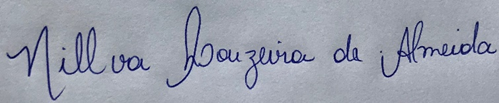 Nillva Souzeira de Almeida